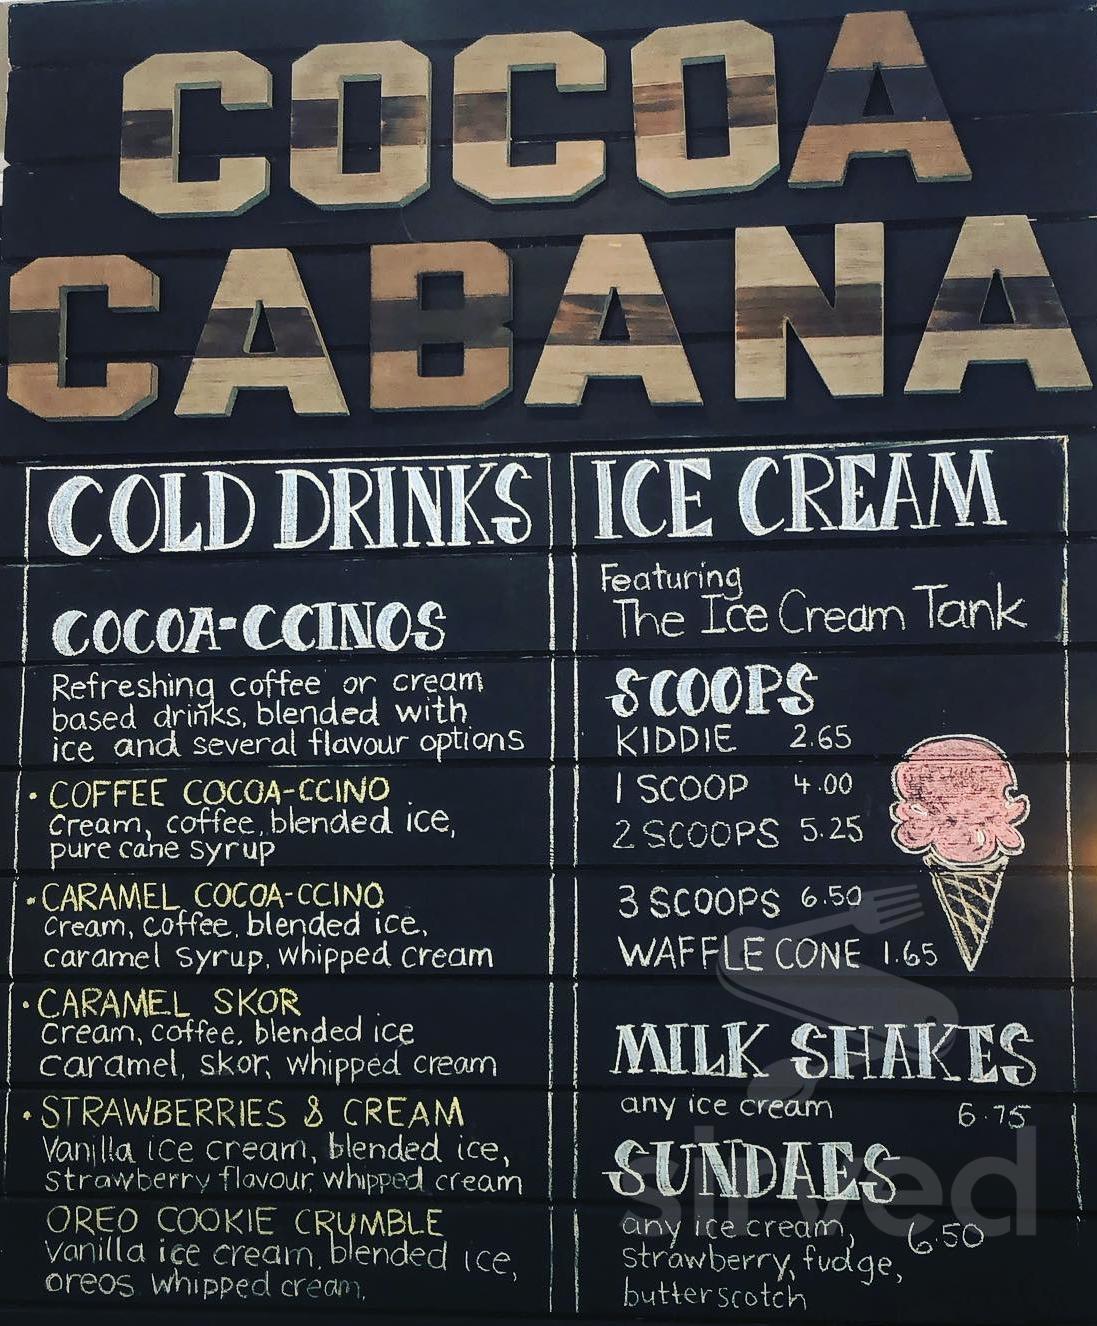 COCOA
CABANA
COLD DRINKS
COCOA-CCINOS
Refreshing coffee or cream
based drinks, blended with
ice and several flavour options
• COFFEE COCOA-CCINO
Cream, coffee, blended ice,
pure cane syrup
• CARAMEL COCOA-CCINO
Cream, coffee, blended ice,
caramel syrup, whipped cream
• CARAMEL SKOR
Cream, coffee, blended ice
Caramel, skor, whipped cream
• STRAWBERRIES & CREAM
Vanilla ice cream, blended ice,
strawberry flavour, whipped cream
OREO COOKIE CRUMBLE
Vanilla ice cream, blended ice,
oreos whipped cream,
ICE CREAM
Featuring
The Ice Cream Tank
SCOOPS
KIDDIE 2.65
1 SCOOP 4.00
2 SCOOPS 5.25
3 SCOOPS 6.50
WAFFLE CONE 1.65
MILK SHAKES
any ice cream 6.75
SUNDAES
any ice cream, 6.50
strawberry, fudge,
butterscotch
sirved